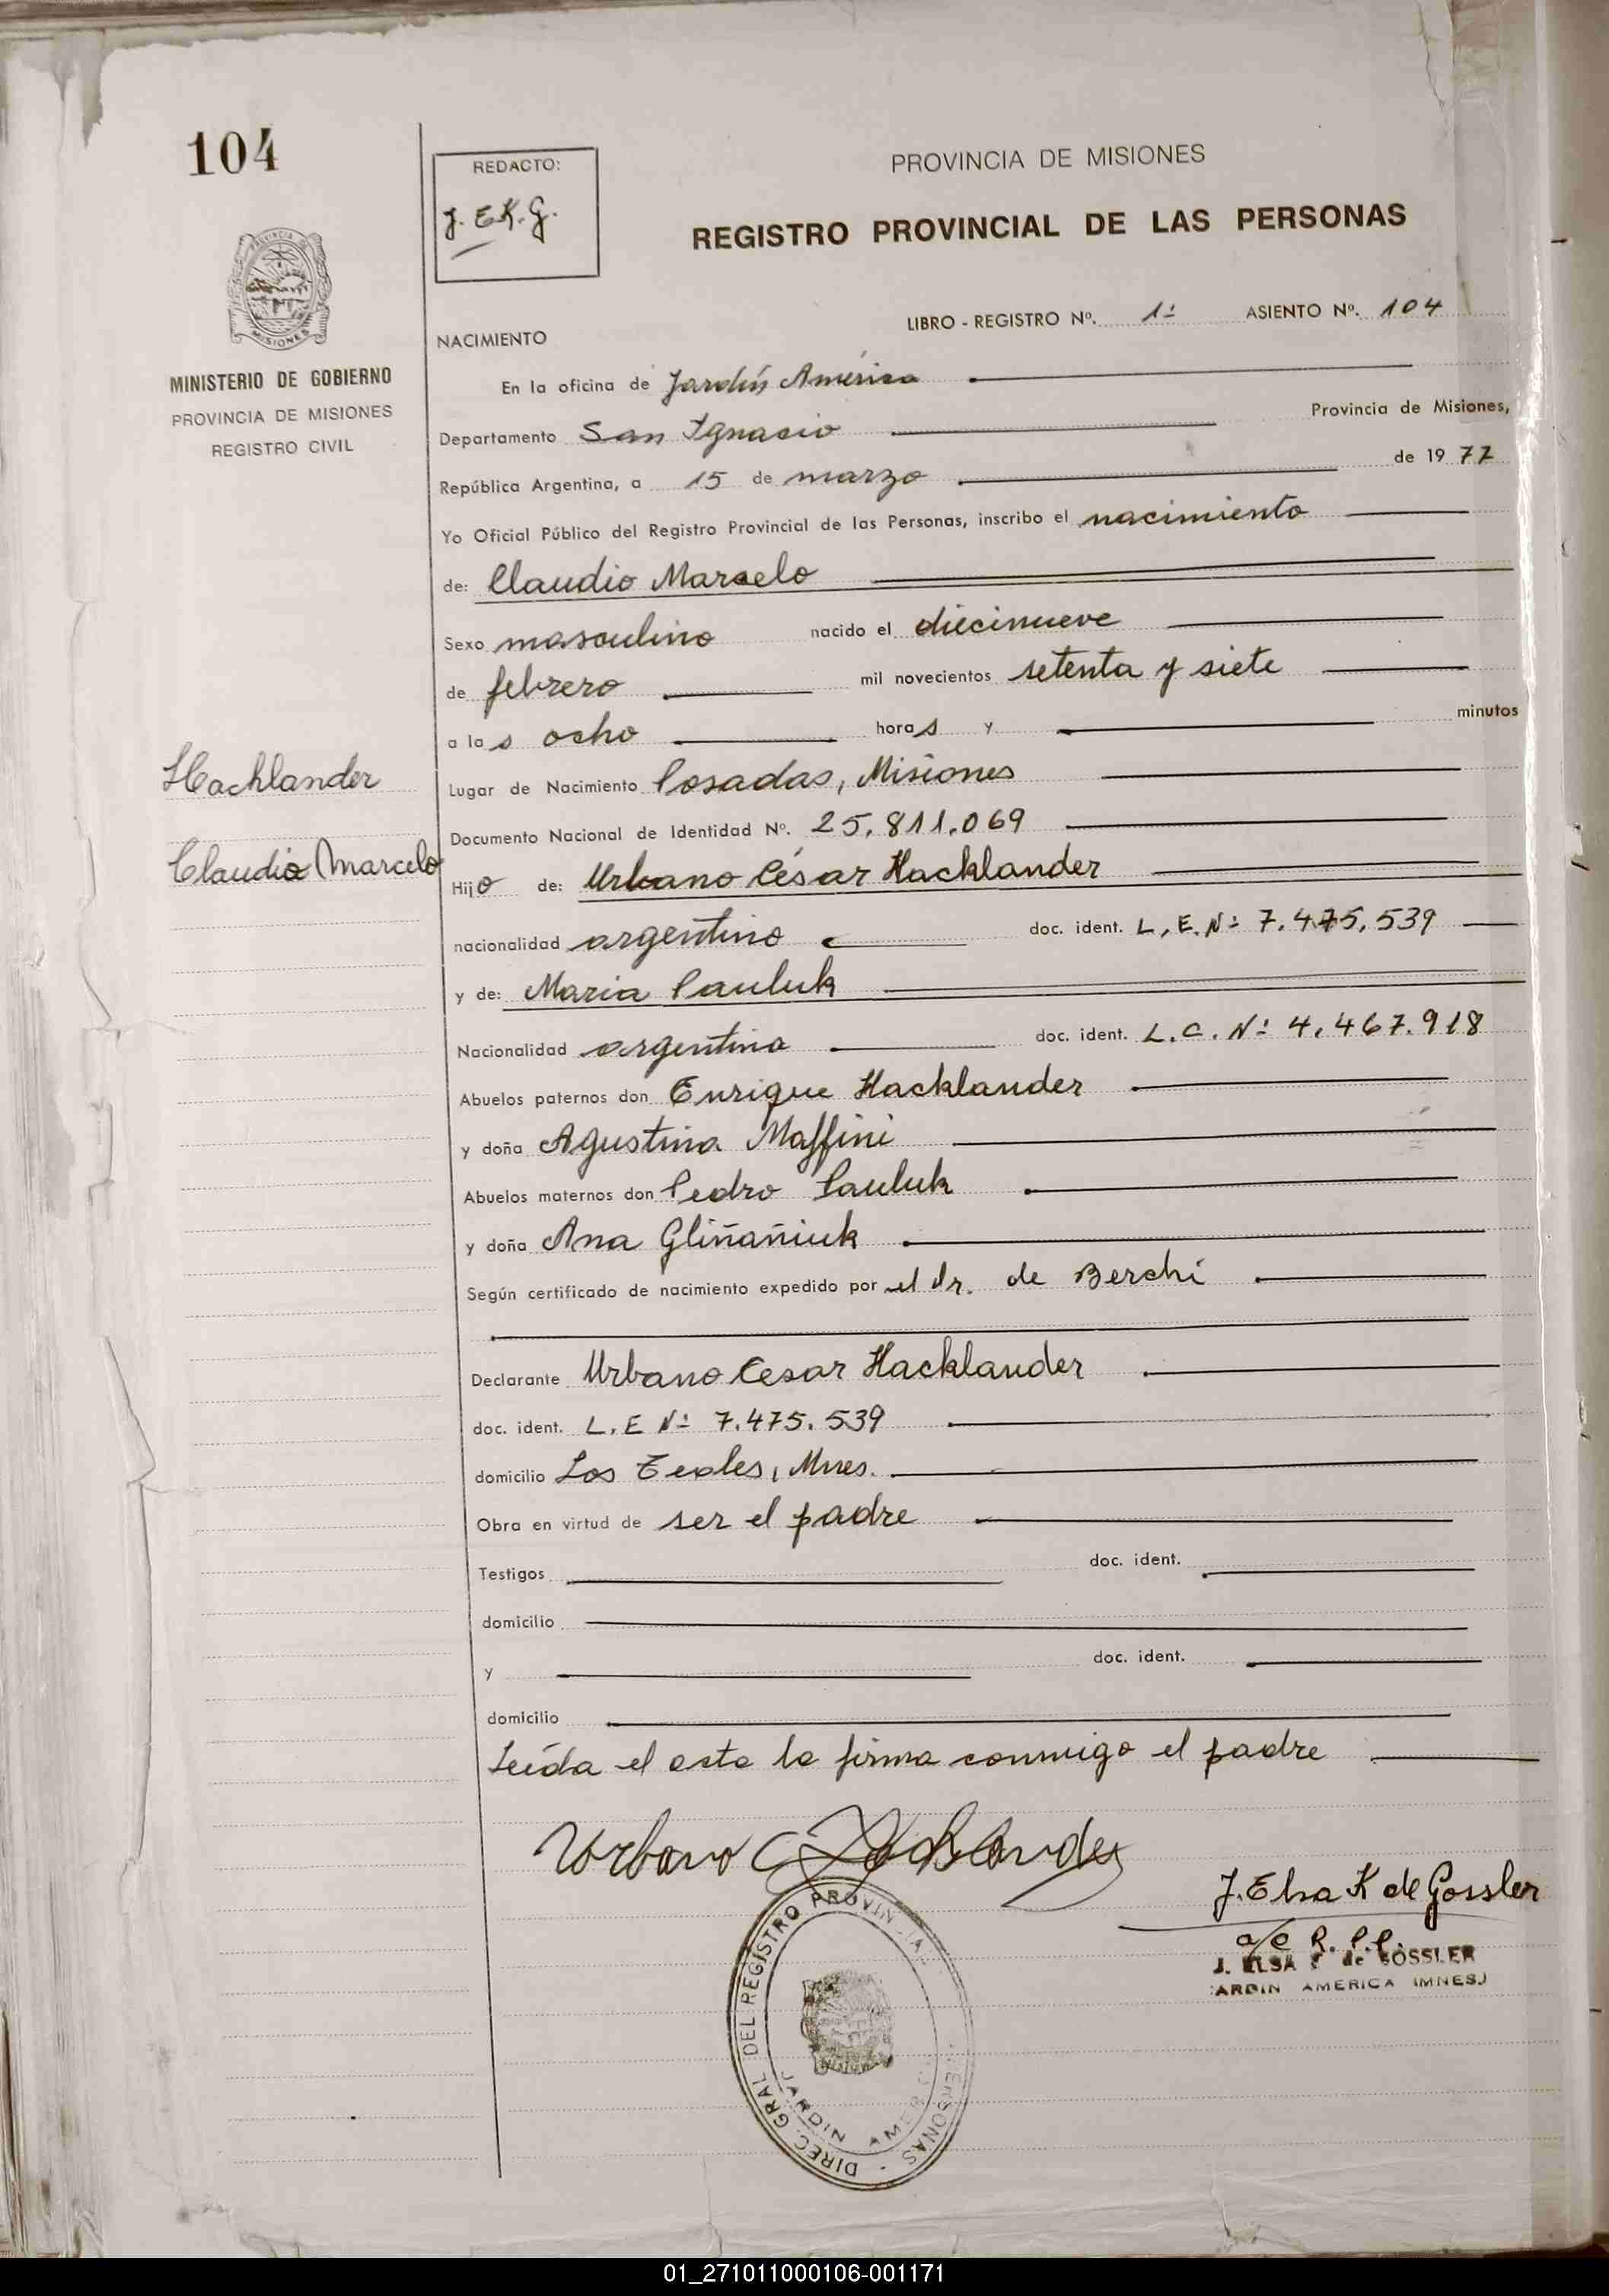 104
REDACTO:
J. E.K.G.
PROVINCIA DE MISIONES
REGISTRO PROVINCIAL DE LAS PERSONAS
MINISTERIO DE GOBIERNO
PROVINCIA DE MISIONES
REGISTRO CIVIL
LIBRO - REGISTRO Nº. 1º ASIENTO Nº. 104
NACIMIENTO
En la oficina de Jardín América
Departamento San Ignacio Provincia de Misiones,
República Argentina, a 15 de marzo de 1977
Yo Oficial Público del Registro Provincial de las Personas, inscribo el nacimiento
de: Claudio Marcelo
Sexo masculino nacido el diecinueve
de febrero mil novecientos setenta y siete
a las ocho horas y minutos
Hachlander
Lugar de Nacimiento Posadas, Misiones
Documento Nacional de Identidad Nº. 25.811.069
Claudio Marcelo
Hijo de: Urbano César Hacklander
nacionalidad argentino doc. ident. L.E. Nº 7.475.539
y de: Maria Pauluk
Nacionalidad argentina doc. ident. L.C. Nº 4.467.918
Abuelos paternos don Enrique Hacklander
y doña Agustina Maffini
Abuelos maternos don Pedro Pauluk
y doña Ana Gliñañiuk
Según certificado de nacimiento expedido por el dr. de Berchi
Declarante Urbano Cesar Hacklander
doc. ident. L.E Nº 7.475.539
domicilio Los Teales, Mnes.
Obra en virtud de ser el padre
Testigos doc. ident.
domicilio
y doc. ident.
domicilio
Leída el acta la firma conmigo el padre
Urbano C Hacklander
J. Elsa K de Gossler
a/c R. P.P.
J. ELSA K de GOSSLER
JARDIN AMERICA (MNES.)
DIREC. GRAL DEL REGISTRO PROVINCIAL PERSONAS
JARDIN AMERICA
01_271011000106-001171